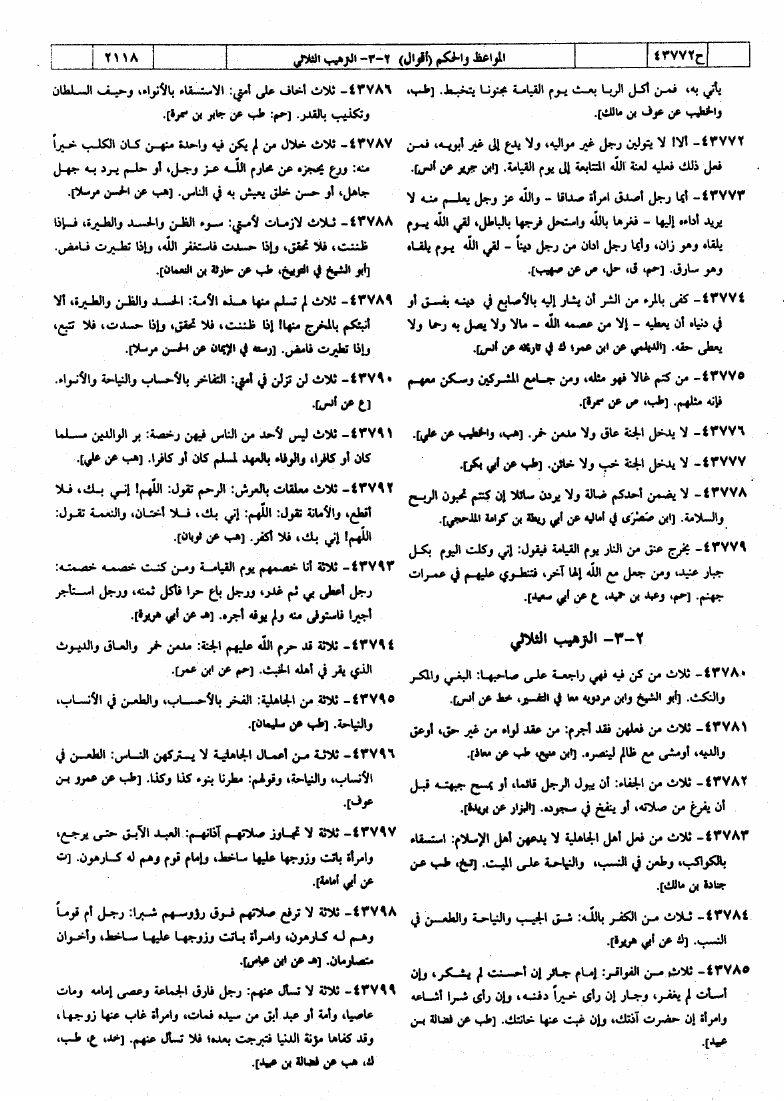 ح٤٣٧٧٢
المواعظ والحكم (أقوال) ٢-٣- الترهيب الثلاثي
٢١١٨
يأتي به، فمن أكل الربا بعث يوم القيامة مجنونا يتخبط. [طب،
والخطيب عن عوف بن مالك].
٤٣٧٧٢- ألا! لا يتولين رجل غير مواليه، ولا يدع إلى غير أبويه، فمن
فعل ذلك فعليه لعنة الله المتتابعة إلى يوم القيامة. [ابن جرير عن أنس].
٤٣٧٧٣- أيما رجل أصدق امرأة صداقا - والله عز وجل يعلم منه لا
يريد أداءه إليها - فغرها بالله واستحل فرجها بالباطل، لقي الله يوم
يلقاه وهو زان، وأيما رجل ادان من رجل ديناً - لقي الله يوم يلقاه
وهو سارق. [حم، ق، حل، ص عن صهيب].
٤٣٧٧٤- كفى بالمرء من الشر أن يشار إليه بالأصابع في دينه بفسق أو
في دنياه أن يعطيه - إلا من عصمه الله - مالا ولا يصل به رحما ولا
يعطى حقه. [الديلمي عن ابن عمر؛ ك في تاريخه عن أنس].
٤٣٧٧٥- من كتم غالا فهو مثله، ومن جامع المشركين وسكن معهم
فإنه مثلهم. [طب، ص عن سمرة].
٤٣٧٧٦- لا يدخل الجنة عاق ولا مدمن خمر. [هب، والخطيب عن علي].
٤٣٧٧٧- لا يدخل الجنة خب ولا خائن. [طب عن أبي بكر].
٤٣٧٧٨- لا يضمن أحدكم ضالة ولا يردن سائلا إن كنتم تحبون الربح
والسلامة. [ابن صَصْرَى في أماليه عن أبي ريطة بن كرامة المذحجي].
٤٣٧٧٩- يخرج عنق من النار يوم القيامة فيقول: إني وكلت اليوم بكل
جبار عنيد، ومن جعل مع الله إلها آخر، فتنطوي عليهم في غمرات
جهنم. [حم، وعبد بن حميد، ع عن أبي سعيد].
٢-٣- الترهيب الثلاثي
٤٣٧٨٠- ثلاث من كن فيه فهي راجعة على صاحبها: البغي والمكر
والنكث. [أبو الشيخ وابن مردويه معا في التفسير، خط عن أنس].
٤٣٧٨١- ثلاث من فعلهن فقد أجرم: من عقد لواء من غير حق، أوعق
والديه، أومشى مع ظالم لينصره. [ابن منيع، طب عن معاذ].
٤٣٧٨٢- ثلاث من الجفاء: أن يبول الرجل قائما، أو يمسح جبهته قبل
أن يفرغ من صلاته، أو ينفخ في سجوده. [البزار عن بريدة].
٤٣٧٨٣- ثلاث من فعل أهل الجاهلية لا يدعهن أهل الإسلام: استسقاء
بالكواكب، وطعن في النسب، والنياحة على الميت. [تخ، طب عن
جنادة بن مالك].
٤٣٧٨٤- ثلاث من الكفر بالله: شق الجيب والنياحة والطعن في
النسب. [ك عن أبي هريرة].
٤٣٧٨٥- ثلاث من الفواقر: إمام جائر إن أحسنت لم يشكر، وإن
أسأت لم يغفر، وجار إن رأى خيراً دفنه، وإن رأى شرا أشاعه
وامرأة إن حضرت آذتك، وإن غبت عنها خانتك. [طب عن فضالة بن
عبيد].
٤٣٧٨٦- ثلاث أخاف على أمتي: الاستسقاء بالأنواء، وحيف السلطان
وتكذيب بالقدر. [حم: طب عن جابر بن سمرة].
٤٣٧٨٧- ثلاث خلال من لم يكن فيه واحدة منهن كان الكلب خيراً
منه: ورع يحجزه عن محارم الله عز وجل، أو حلم يرد به جهل
جاهل، أو حسن خلق يعيش به في الناس. [هب عن الحسن مرسلا].
٤٣٧٨٨- ثلاث لازمات لأمتي: سوء الظن والحسد والطيرة، فإذا
ظننت، فلا تحقق، وإذا حسدت فاستغفر الله، وإذا تطيرت فامض.
[أبو الشيخ في التوبيخ، طب عن حارثة بن النعمان].
٤٣٧٨٩- ثلاث لم تسلم منها هذه الأمة: الحسد والظن والطيرة، ألا
أنبئكم بالمخرج منها! إذا ظننت، فلا تحقق، وإذا حسدت، فلا تتبع،
وإذا تطيرت فامض. [رسته في الإيمان عن الحسن مرسلا].
٤٣٧٩٠- ثلاث لن تزلن في أمتي: التفاخر بالأحساب والنياحة والأنواء.
[ع عن أنس].
٤٣٧٩١- ثلاث ليس لأحد من الناس فيهن رخصة: بر الوالدين مسلما
كان أو كافرا، والوفاء بالعهد لمسلم كان أو كافرا. [هب عن علي].
٤٣٧٩٢- ثلاث معلقات بالعرش: الرحم تقول: اللهم! إني بك، فلا
أقطع، والأمانة تقول: اللهم: إني بك، فلا أختان، والنعمة تقول:
اللهم! إني بك، فلا أكفر. [هب عن ثوبان].
٤٣٧٩٣- ثلاثة أنا خصمهم يوم القيامة ومن كنت خصمه خصمته:
رجل أعطى بي ثم غدر، ورجل باع حرا فأكل ثمنه، ورجل استأجر
أجيرا فاستوفى منه ولم يوفه أجره. [هـ عن أبي هريرة].
٤٣٧٩٤- ثلاثة قد حرم الله عليهم الجنة: مدمن خمر والعاق والديوث
الذي يقر في أهله الخبث. [حم عن ابن عمر].
٤٣٧٩٥- ثلاثة من الجاهلية: الفخر بالأحساب، والطعن في الأنساب،
والنياحة. [طب عن سلمان].
٤٣٧٩٦- ثلاثة من أعمال الجاهلية لا يتركهن الناس: الطعن في
الأنساب، والنياحة، وقولهم: مطرنا بنوء كذا وكذا. [طب عن عمرو بن
عوف].
٤٣٧٩٧- ثلاثة لا تجاوز صلاتهم آذانهم: العبد الآبق حتى يرجع،
وامرأة باتت وزوجها عليها ساخط، وإمام قوم وهم له كارهون. [ت
عن أبي أمامة].
٤٣٧٩٨- ثلاثة لا ترفع صلاتهم فوق رؤوسهم شبرا: رجل أم قوماً
وهم له كارهون، وامرأة باتت وزوجها عليها ساخط، وأخوان
متصارمان. [هـ عن ابن عباس].
٤٣٧٩٩- ثلاثة لا تسأل عنهم: رجل فارق الجماعة وعصى إمامه ومات
عاصيا، وأمة أو عبد أبق من سيده فمات، وامرأة غاب عنها زوجها،
وقد كفاها مؤنة الدنيا فتبرجت بعده؛ فلا تسأل عنهم. [خد، ع، طب،
ك، هب عن فضالة بن عبيد].